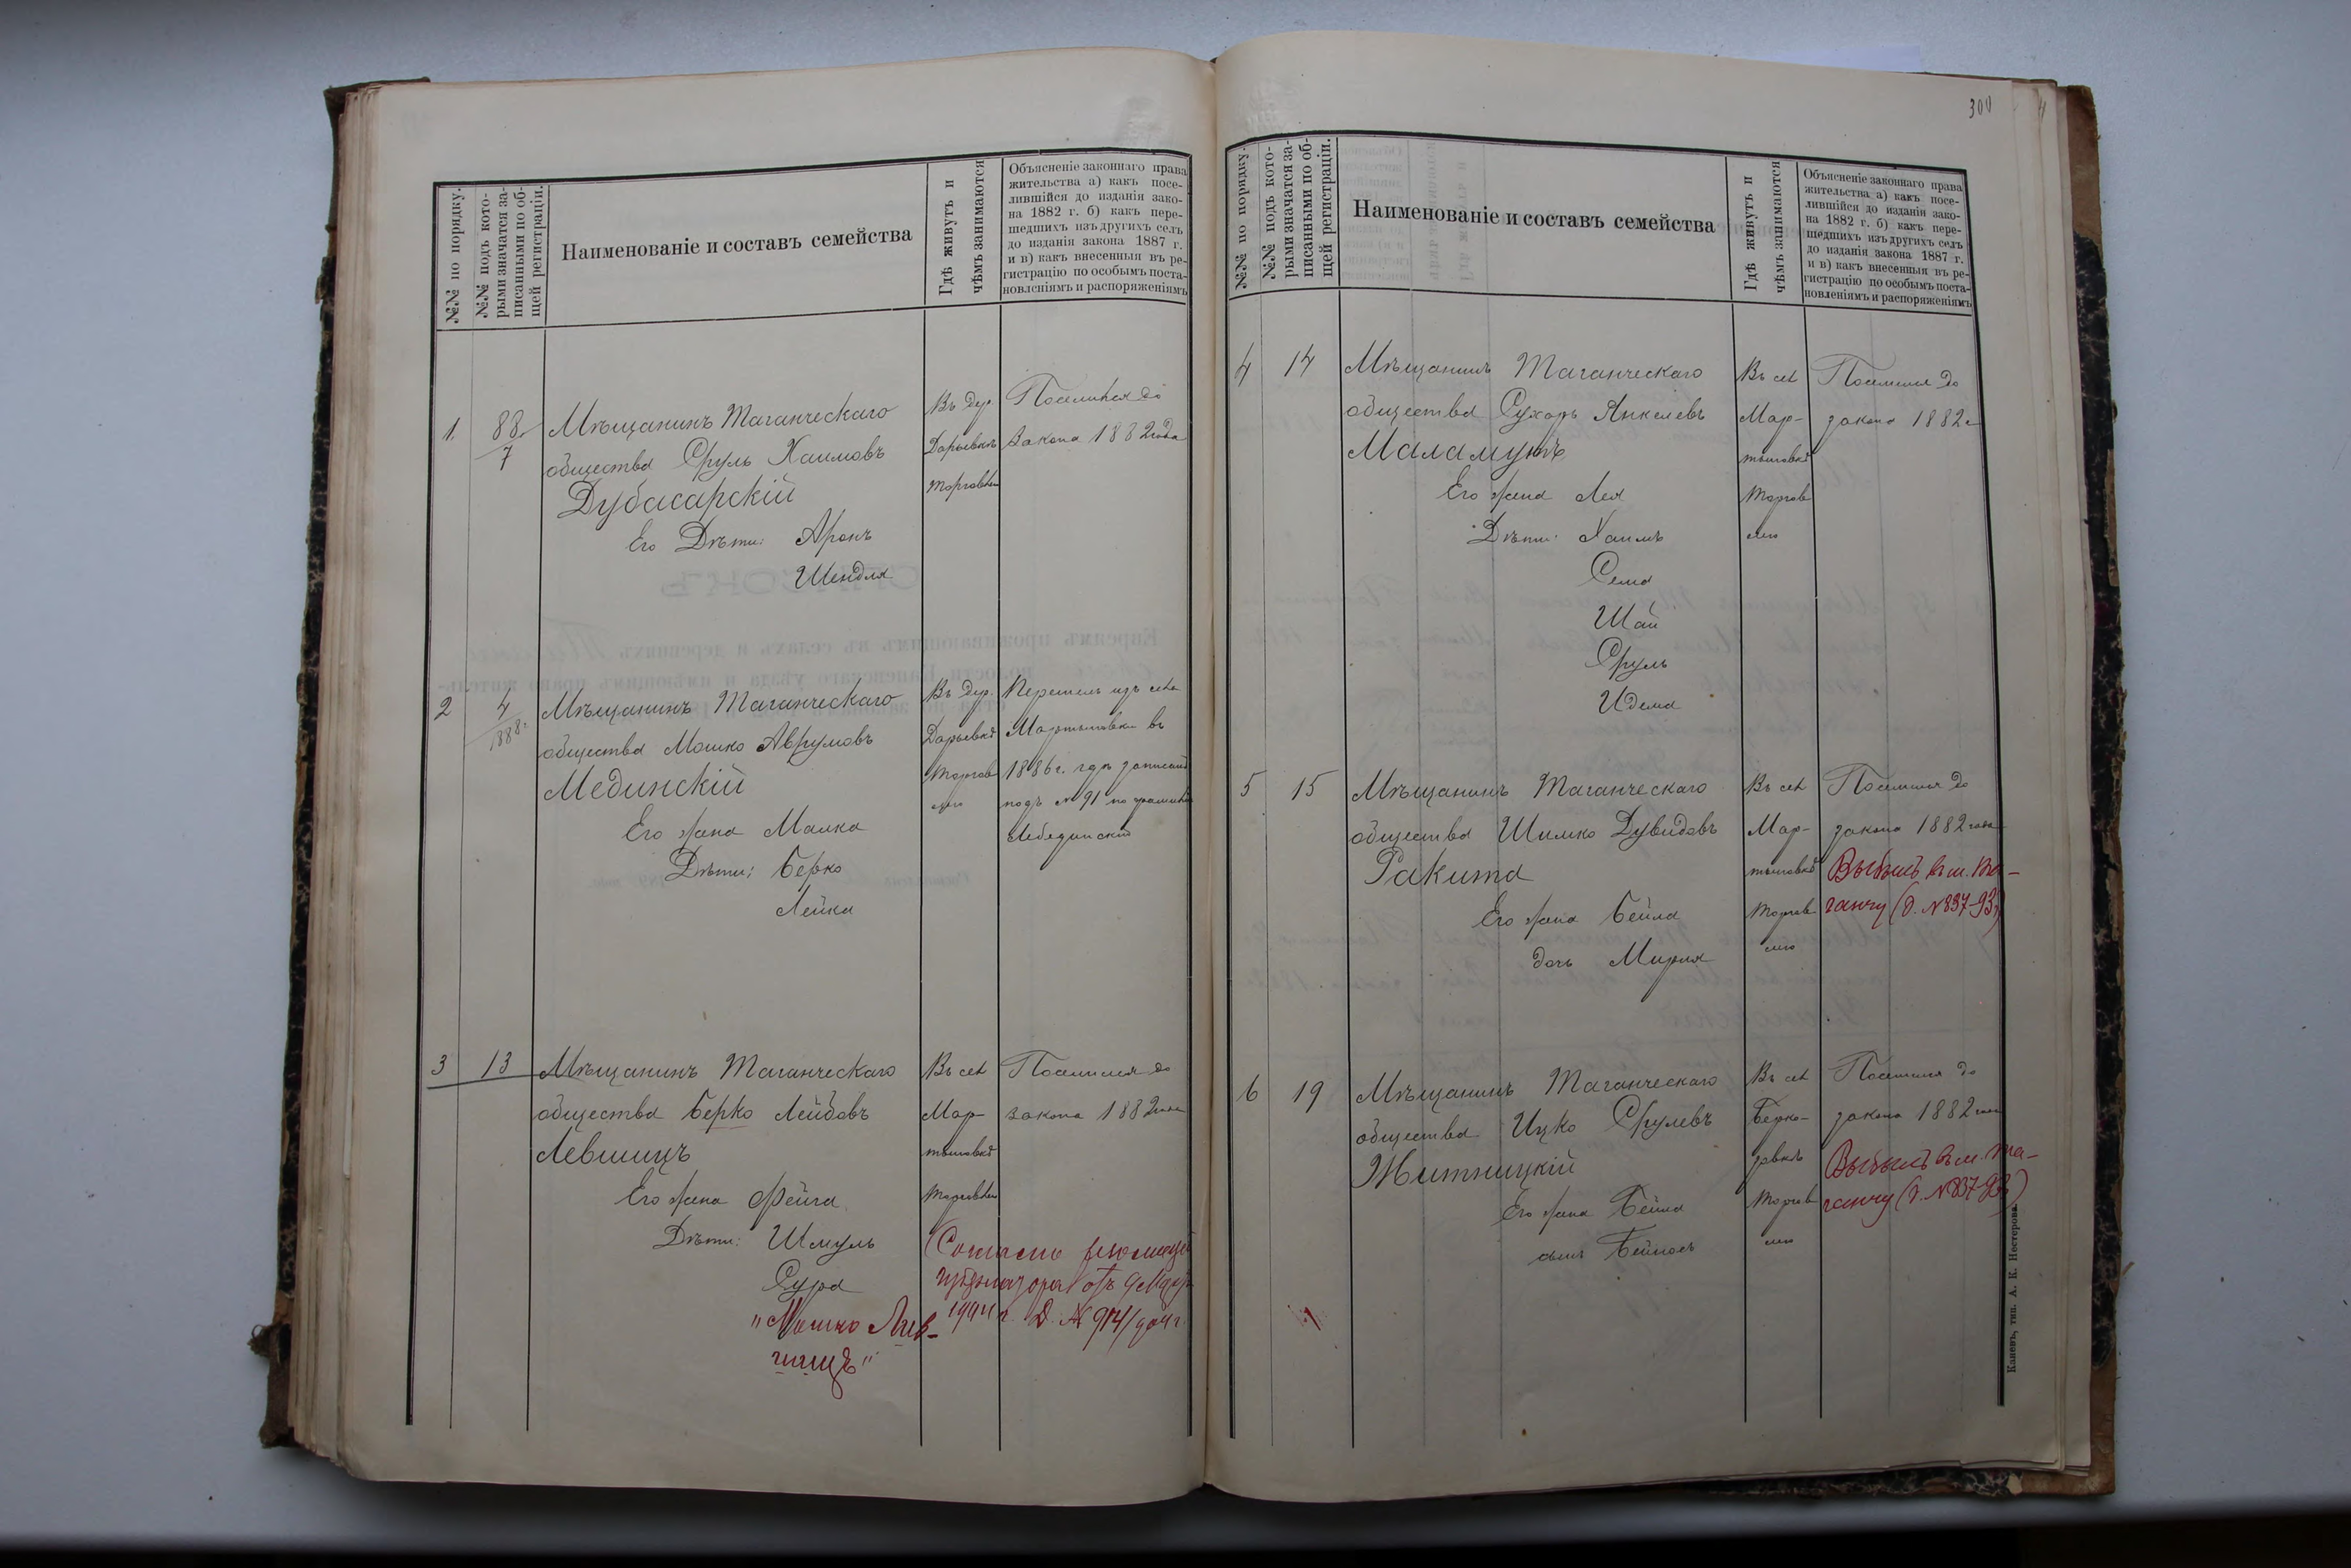 №№ по порядку.
№№ подъ кото-
рыми значатся за-
писанными по об-
щей регистраціи.
Наименованіе и составъ семейства
Гдѣ живутъ и
чѣмъ занимаются
Объясненіе законнаго права
жительства а) какъ посе-
лившійся до изданія зако-
на 1882 г. б) какъ пере-
шедшихъ изъ другихъ селъ
до изданія закона 1887 г.
и в) какъ внесенныя въ ре-
гистрацію по особымъ поста-
новленіямъ и распоряженіямъ
1. 88/7
Мѣщанинъ Таганческаго
общества Сруль Хаимовъ
Дубасарскій
Его Дѣти: Аронъ
Шендля
Въ дер.
Дарьевкѣ
торговлею
Поселился до
закона 1882 года
2 4/1888 г.
Мѣщанинъ Таганческаго
общества Мошко Аврумовъ
Мединскій
Его жена Малка
Дѣти: Берко
Лейка
Въ дер.
Дарьевкѣ
торгов
лею
Перешелъ изъ села
Мартыновки въ
1886 г. гдѣ записанъ
подъ № 91 по фамиліи
Лебединскій
3 13
Мѣщанинъ Таганческаго
общества Берко Лейбовъ
Левшицъ
Его жена Фейга
Дѣти: Шмуль
Сура
"Мошко Лив-
шицъ"
Въ селѣ
Мар-
тыновкѣ
торговлею
Поселился до
закона 1882 года
Согласно резолюціи
губернатора отъ
1904 г. Д. № 974/904 г.
300
№№ по порядку.
№№ подъ кото-
рыми значатся за-
писанными по об-
щей регистраціи.
Наименованіе и составъ семейства
Гдѣ живутъ и
чѣмъ занимаются
Объясненіе законнаго права
жительства а) какъ посе-
лившійся до изданія зако-
на 1882 г. б) какъ пере-
шедшихъ изъ другихъ селъ
до изданія закона 1887 г.
и в) какъ внесенныя въ ре-
гистрацію по особымъ поста-
новленіямъ и распоряженіямъ
4 14
Мѣщанинъ Таганческаго
общества Сухоръ Янкелевъ
Маламужъ
Его жена Лея
Дѣти: Хаимъ
Сема
Шай
Сруль
Идема
Въ селѣ
Мар-
тыновкѣ
торгов
лею
Поселился до
закона 1882 г
5 15
Мѣщанинъ Таганческаго
общества Шимко Дувидовъ
Ракита
Его жена Бейла
дочь Мирля
Въ селѣ
Мар-
тыновкѣ
торгов
лею
Поселился до
закона 1882 года
Выбылъ въ м. Та-
ганчу (д. № 837-93)
6 19
Мѣщанинъ Таганческаго
общества Ицко Срулевъ
Житницкій
Его жена Бейла
сынъ Бейнось
Въ селѣ
Берко-
зовкѣ
торгов
лею
Поселился до
закона 1882 года
Выбылъ въ м. Та-
ганчу (д. № 837-93)
Каневъ, тип. А. К. Нестерова.